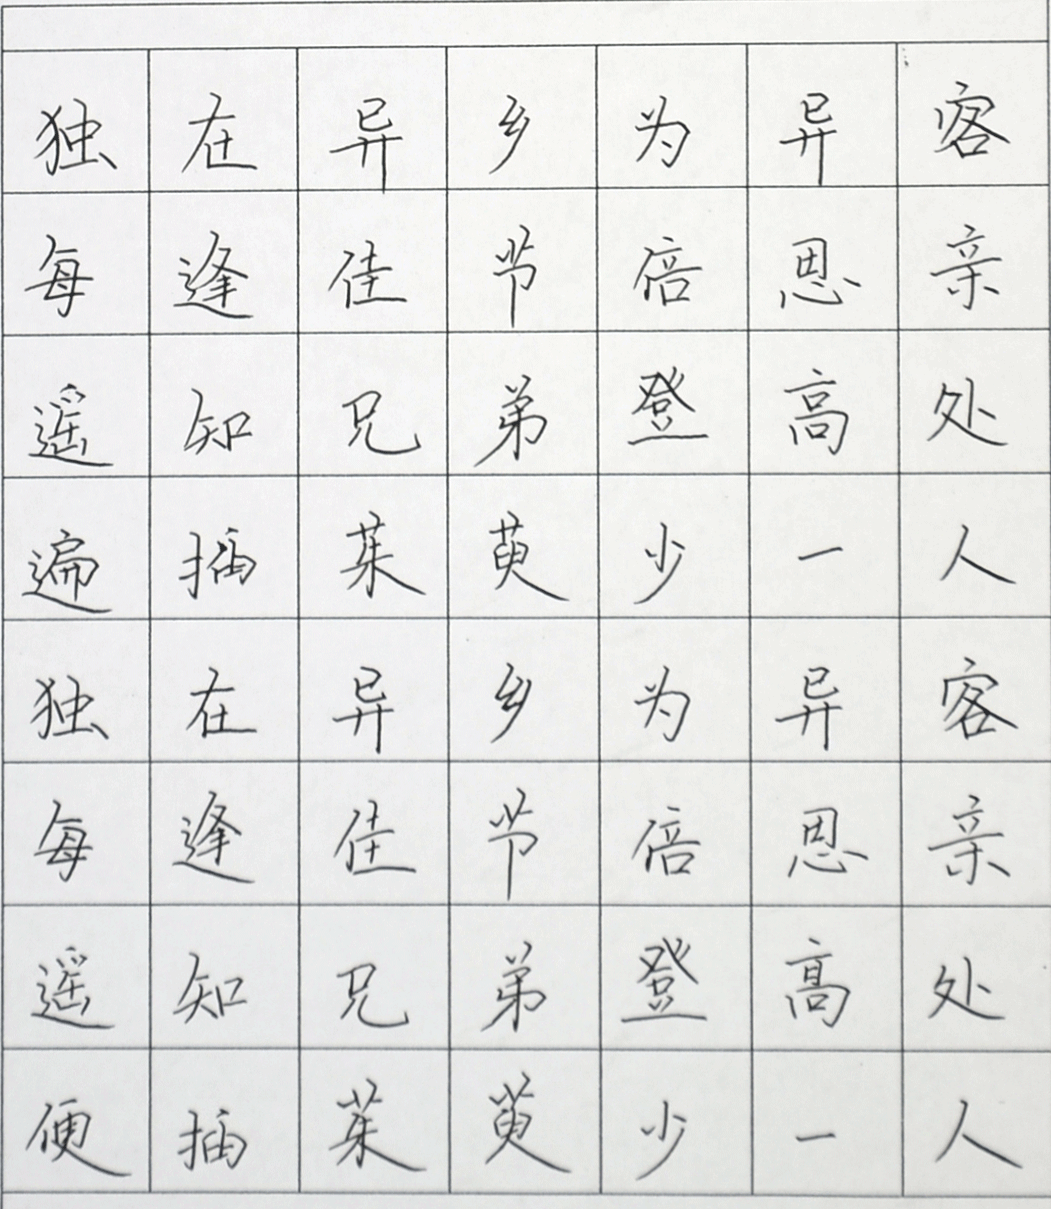 独在异乡为异客
每逢佳节倍恩亲
遥知兄弟登高处
遍插茱萸少一人
独在异乡为异客
每逢佳节倍恩亲
遥知兄弟登高处
便插茱萸少一人